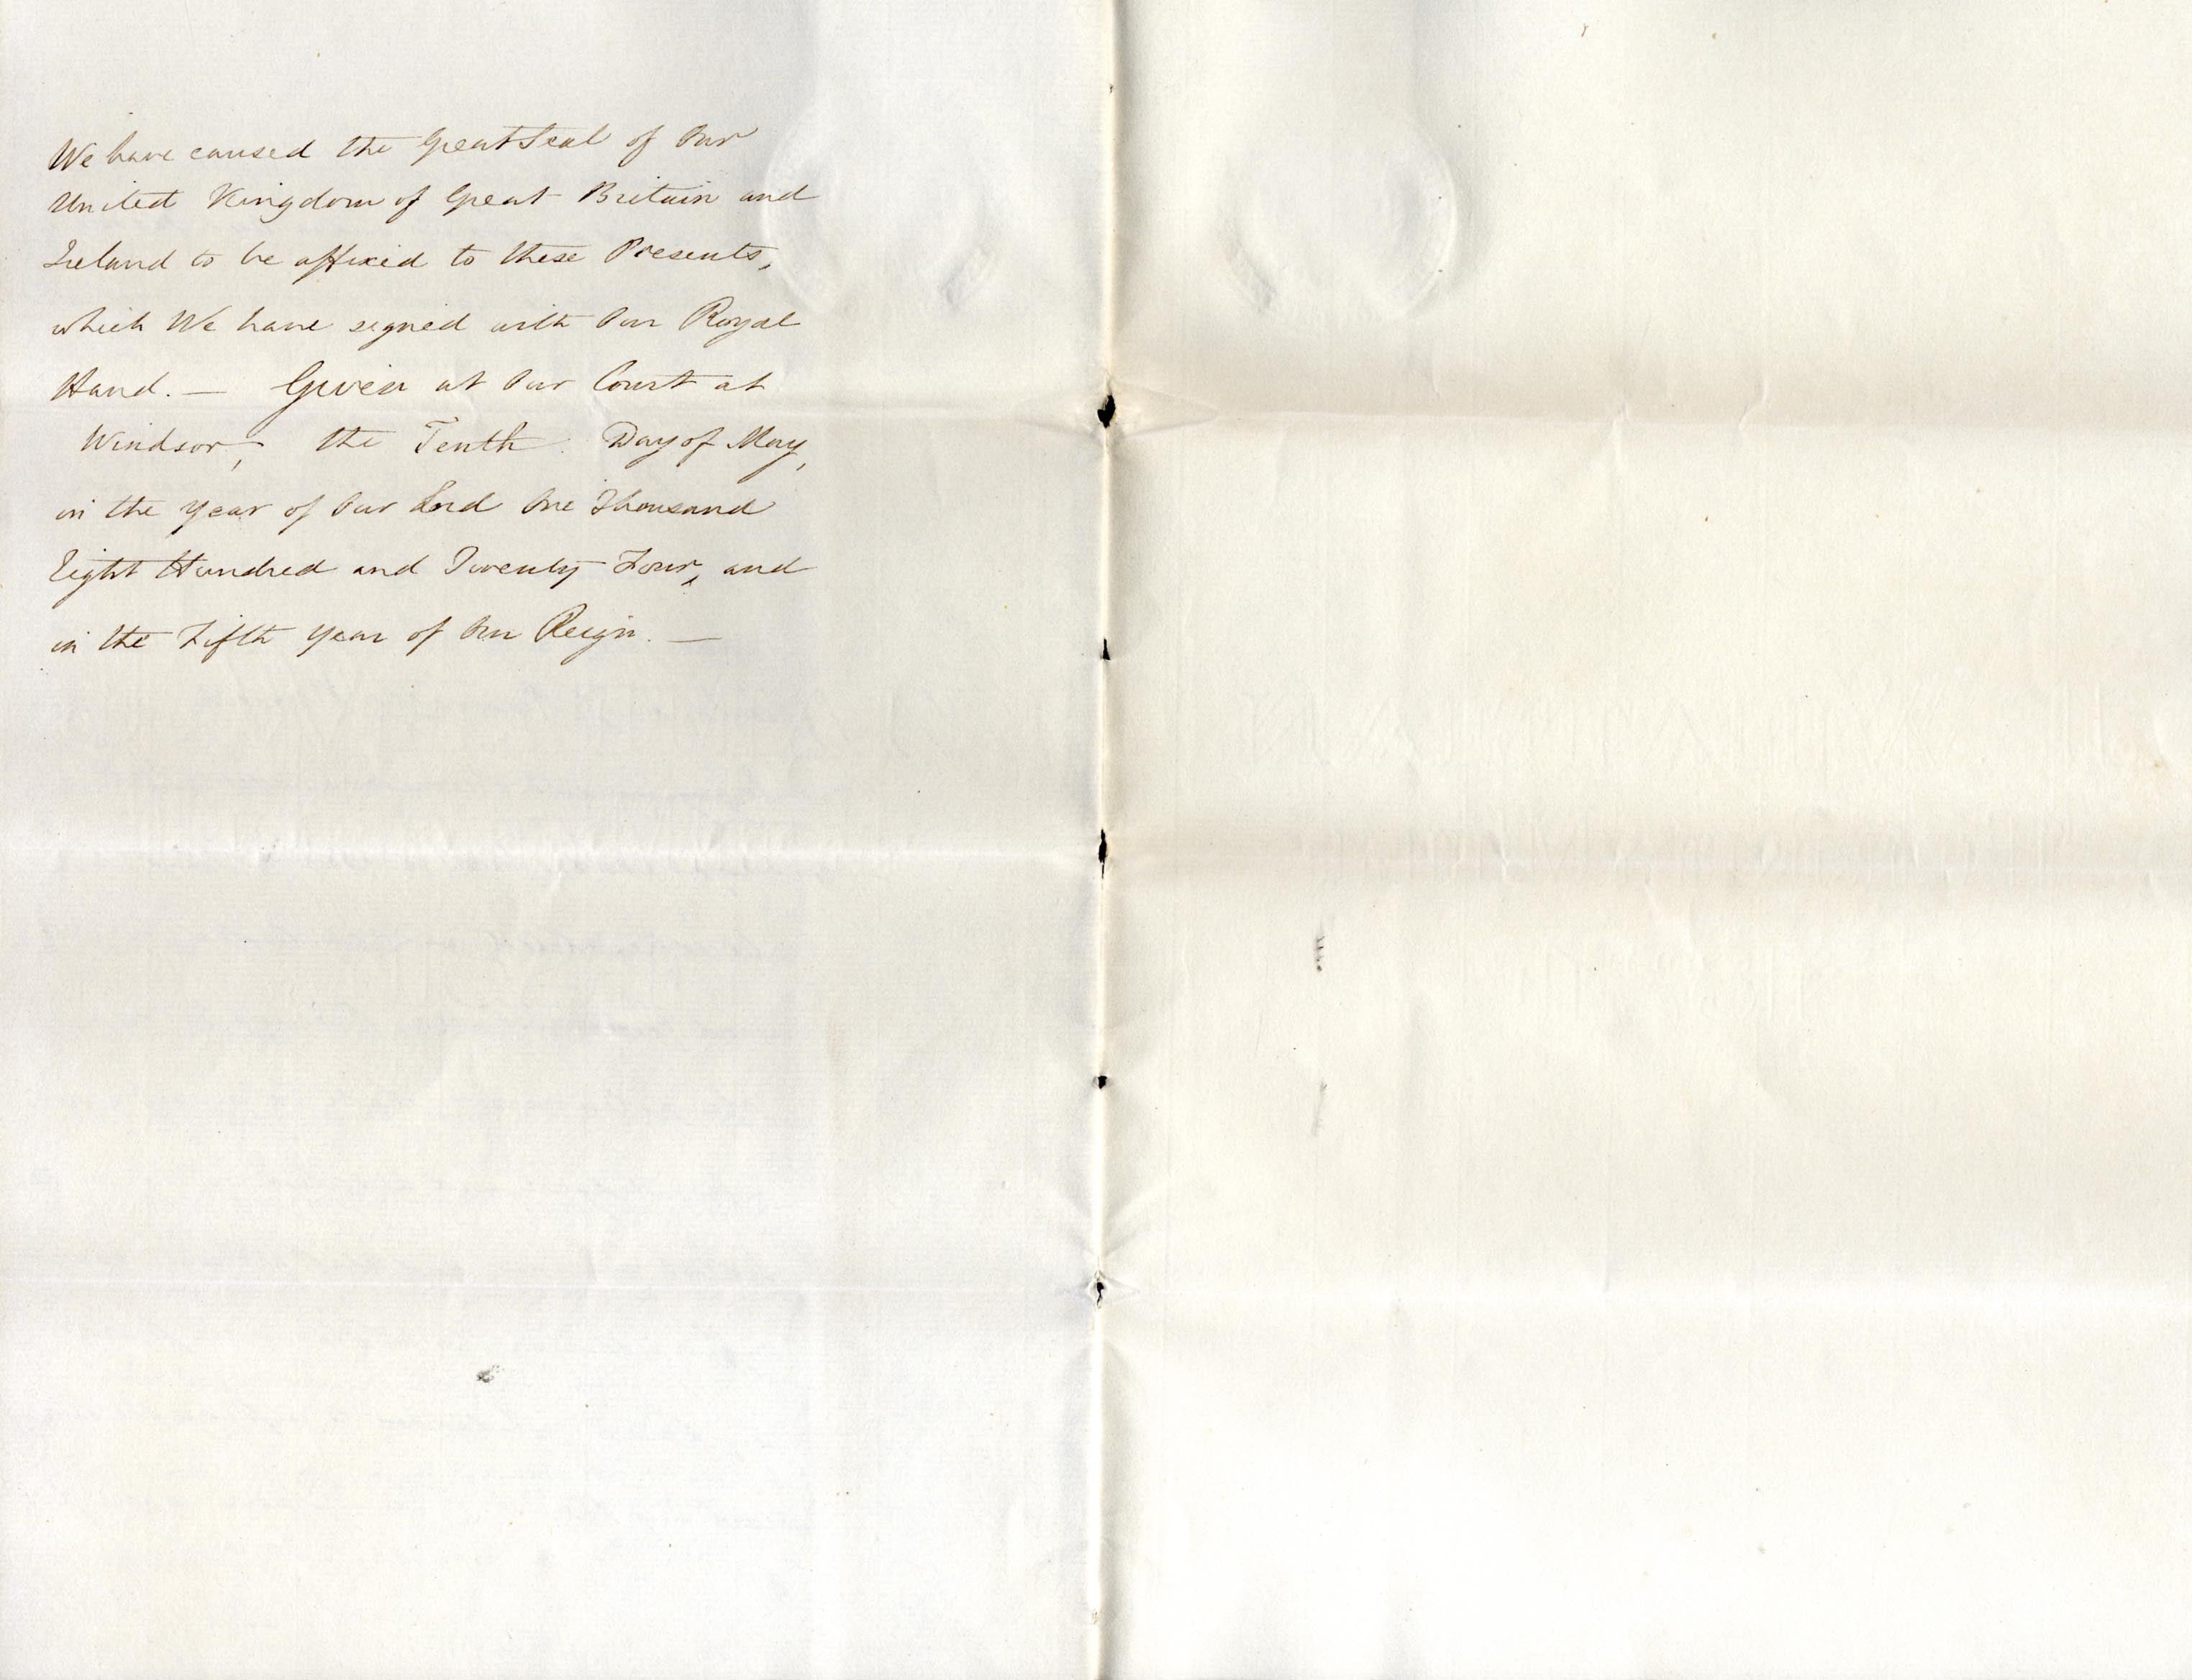 We have caused the Great Seal of Our
United Kingdom of Great Britain and
Ireland to be affixed to these Presents,
which We have signed with Our Royal
Hand. — Given at Our Court at
Windsor, the Tenth Day of May,
in the year of Our Lord One Thousand
Eight Hundred and Twenty Four, and
in the Fifth Year of Our Reign. —